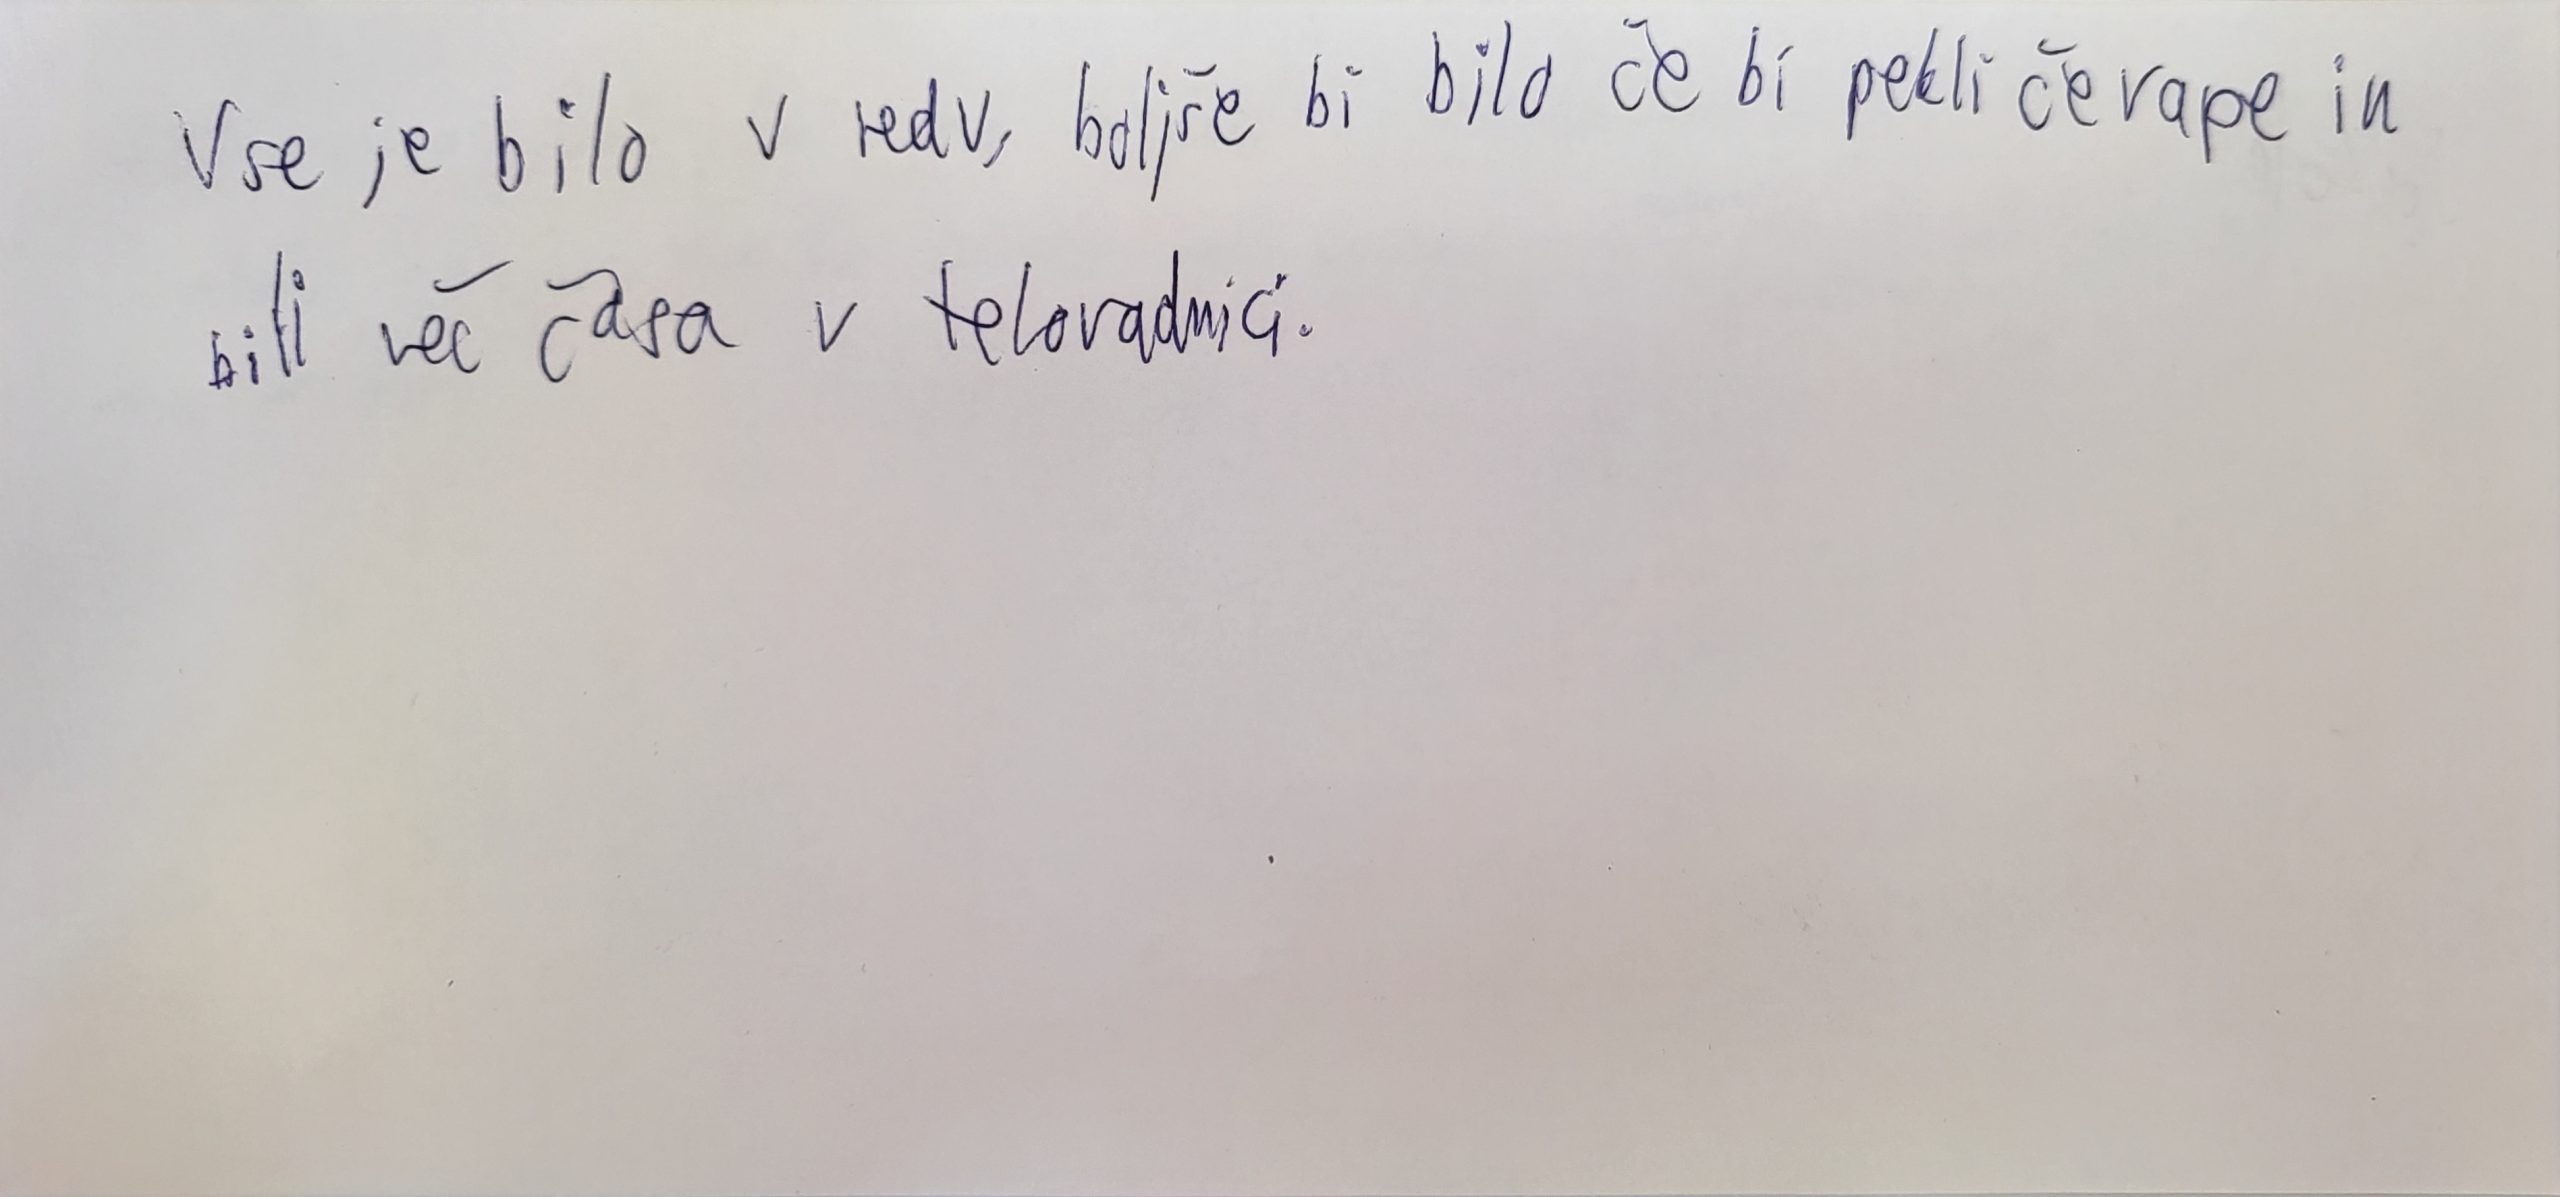 Vse je bilo v redu, boljše bi bilo če bi pekli čevape in
bili več časa v telovadnici.